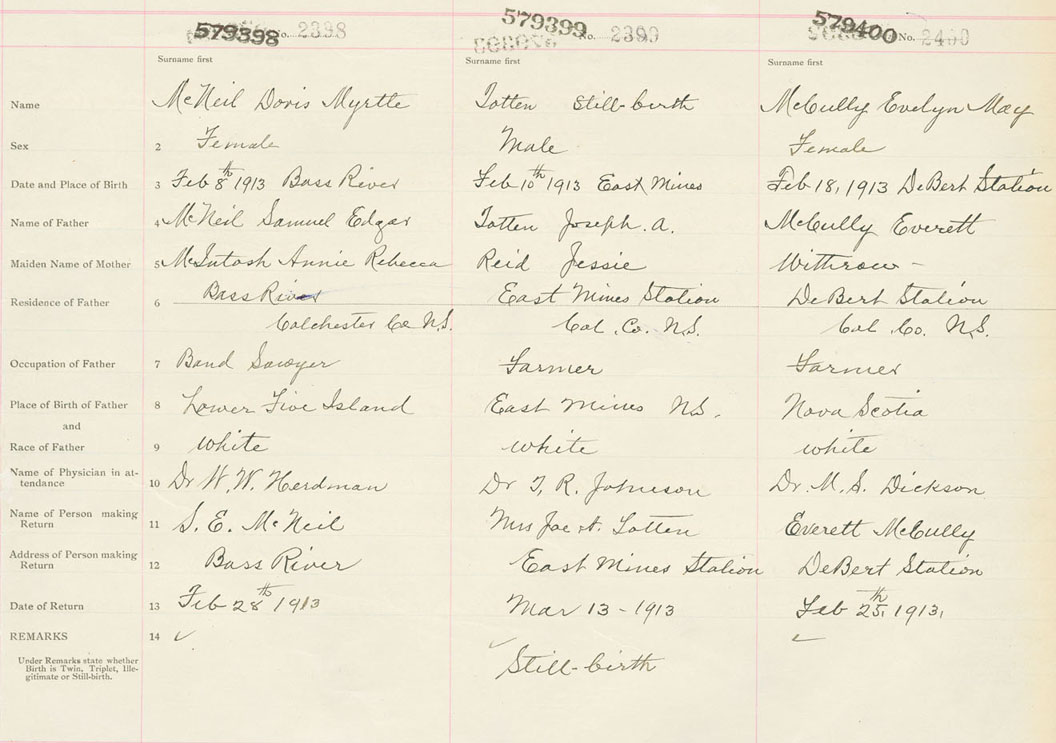 579398 No. 2398 579399 No. 2399 579400 No. 2400
Surname first Surname first Surname first
Name McNeil Doris Myrtle Totten Still-birth McCully Evelyn May
Sex 2 Female Male Female
Date and Place of Birth 3 Feb 8th 1913 Bass River Feb 10th 1913 East Mines Feb 18, 1913 DeBert Station
Name of Father 4 McNeil Samuel Edgar Totten Joseph. A. McCully Everett
Maiden Name of Mother 5 McIntosh Annie Rebecca Reid Jessie Withrow -
Residence of Father 6 Bass River East Mines Station DeBert Station
Colchester Co N.S. Col. Co. N.S. Col Co. N.S.
Occupation of Father 7 Band Sawyer Farmer Farmer
Place of Birth of Father 8 Lower Five Island East Mines N.S. Nova Scotia
and
Race of Father 9 white white white
Name of Physician in at-
tendance 10 Dr W. W. Herdman Dr T. R. Johnson Dr. M. S. Dickson
Name of Person making
Return 11 S. E. McNeil Mrs Joe A. Totten Everett McCully
Address of Person making
Return 12 Bass River East Mines Station DeBert Station
Date of Return 13 Feb 28th 1913 Mar 13 - 1913 Feb 25th, 1913,
REMARKS 14
Under Remarks state whether
Birth is Twin, Triplet, Ille-
gitimate or Still-birth.
Still-birth